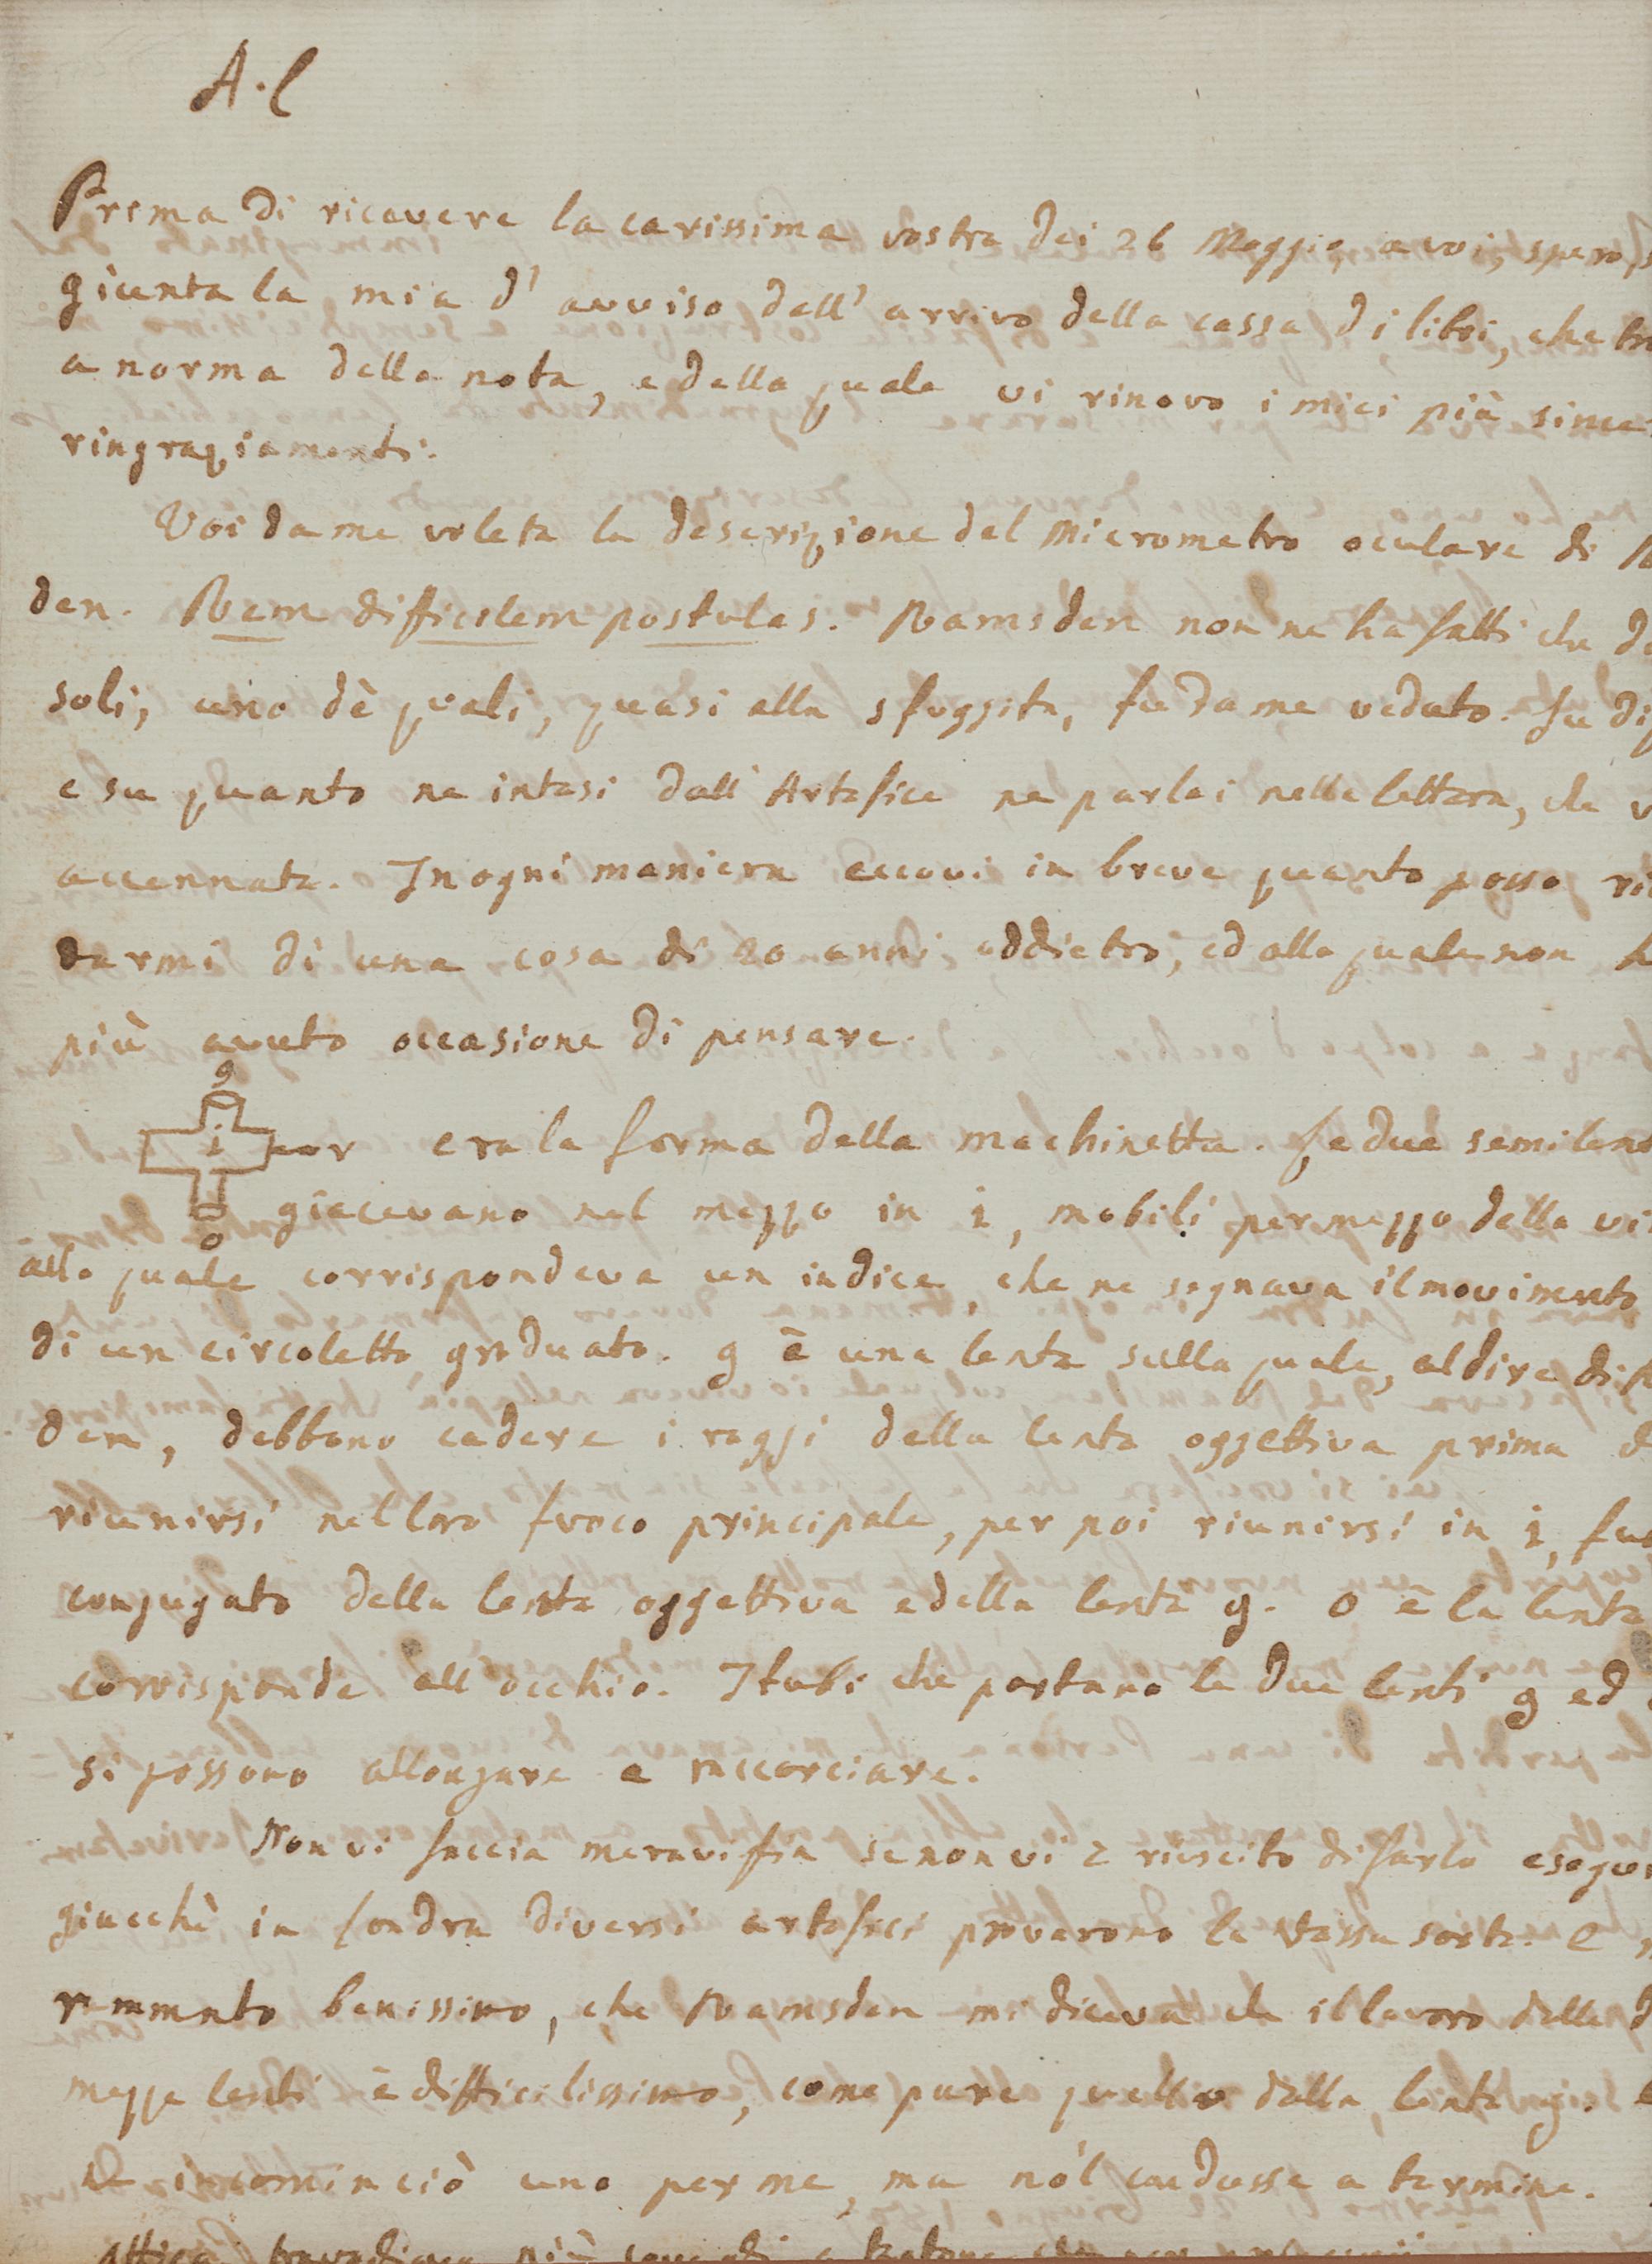 A. C
Prima di ricevere la carissima vostra dei 26 Maggio, a voi, spero,
giunta la mia d' avviso dell' arrivo della cassa di libri, che
a norma della nota, e della quale vi rinovo i miei più since
ringraziamenti.
Voi da me volete la descrizione del Micrometro oculare di
den. Rem difficilem postulas. Ramsden non ne ha fatti che
soli, uno dè quali, quasi alla sfuggita, fu da me veduto. Su
e su quanto ne intesi dall' Artefice ne parlai nella lettera, che
accennate. In ogni maniera eccovi in breve quanto posso
darmi di una cosa di 20 anni addietro, ed alla quale non
più avuto occasione di pensare.
g
i v era la forma della machinetta. Le due semilen
giacevano nel mezzo in i, mobili per mezzo della vi
o
alla quale corrispondeva un indice, che ne segnava il movimento
di un circoletto graduato. g è una lente sulla quale, al dire di
den, debbono cadere i raggi della lente oggettiva prima
riunirsi nel loro fuoco principale, per poi riunirsi in i,
conjugato della lente oggettiva e della lente g. o è la lente
corrisponde all' occhio. I tubi che portano le due lenti g ed
si possono allongare e raccorciare.
Non vi faccia meraviglia se non vi è riuscito di farlo esegui
giacchè in Londra diversi artefici provarono la stessa sorte. E
rammento benissimo, che Ramsden mi diceva che il lavoro delle
mezze lenti è difficilissimo, come pure quello della lente g.
incominciò uno per me, ma nol condusse a termine.